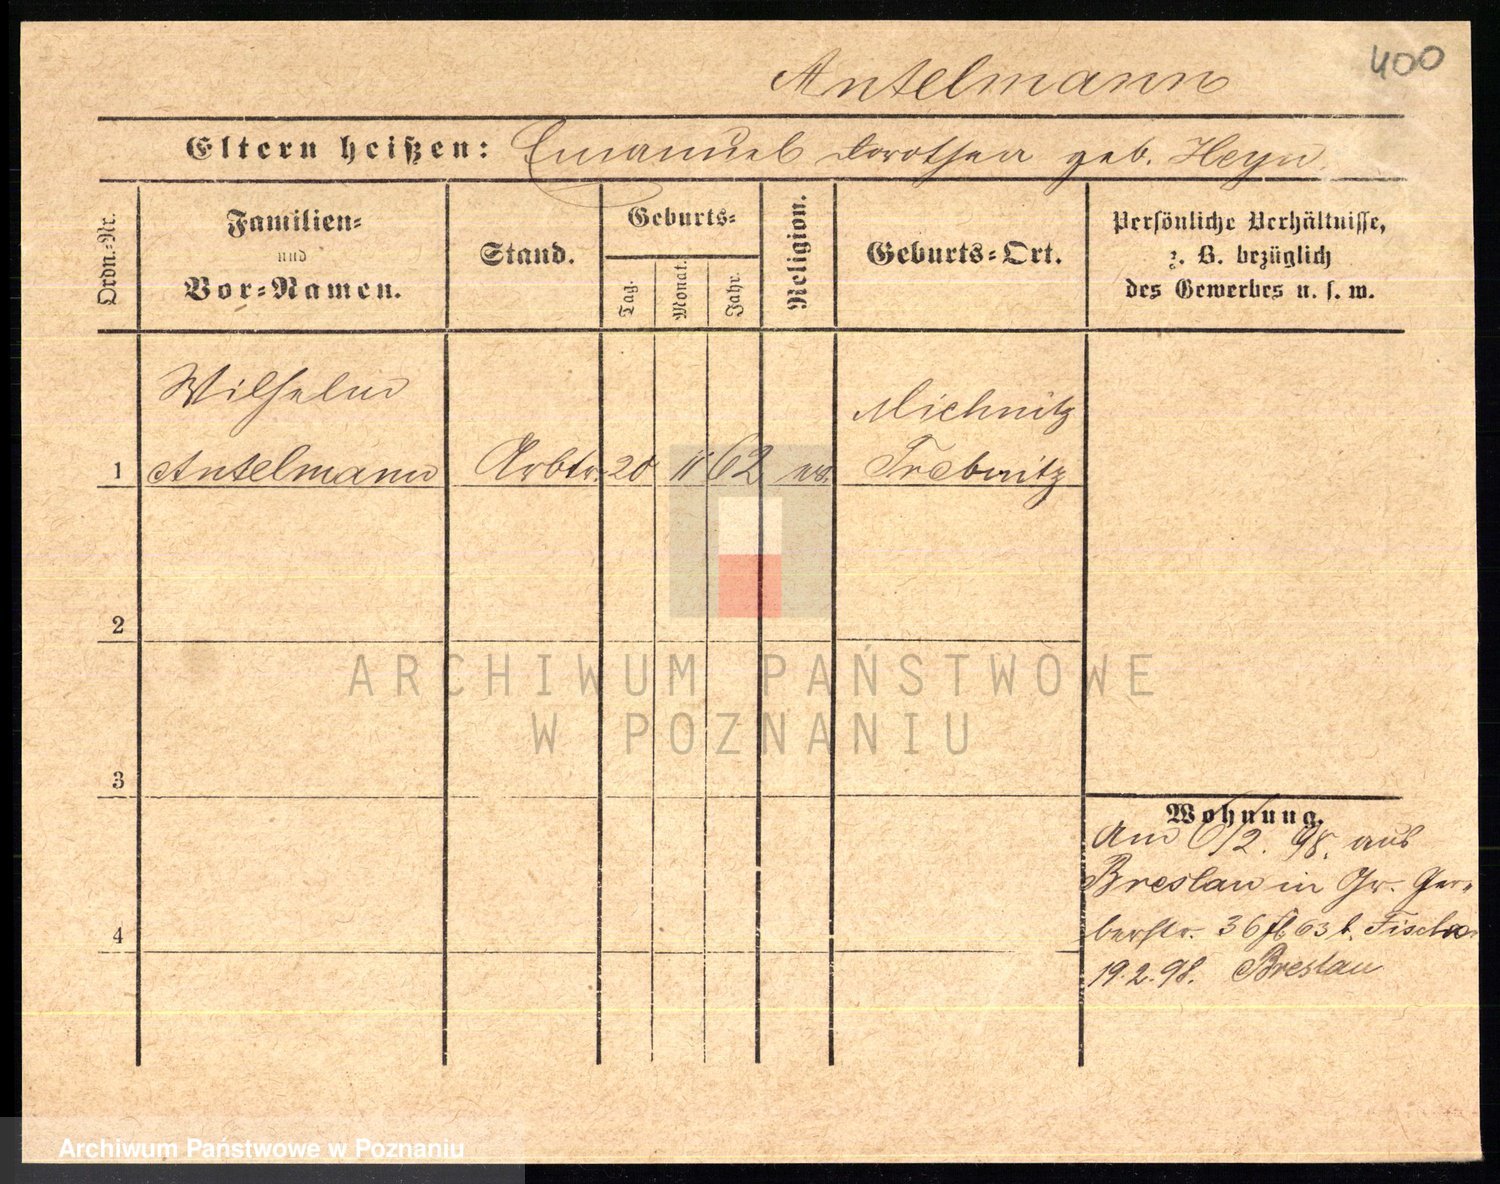 400
Antelmann
Eltern heißen: Emanuel Dorothea geb. Heyn
Ordn.-Nr.
Familien-
und
Vor-Namen.
Stand.
Geburts-
Tag.
Monat.
Jahr.
Religion.
Geburts-Ort.
Persönliche Verhältnisse,
z. B. bezüglich
des Gewerbes u. s. w.
Wilhelm
Michnitz
1 Antelmann Arbtr. 20 11 62 Trebnitz
2
ARCHIWUM PAŃSTWOWE
W POZNANIU
3
Wohnung.
Am 6/2. 98. aus
Breslau in Gr. Ger-
4
berstr. 36 b. Fischer
19.2.98. Breslau
Archiwum Państwowe w Poznaniu